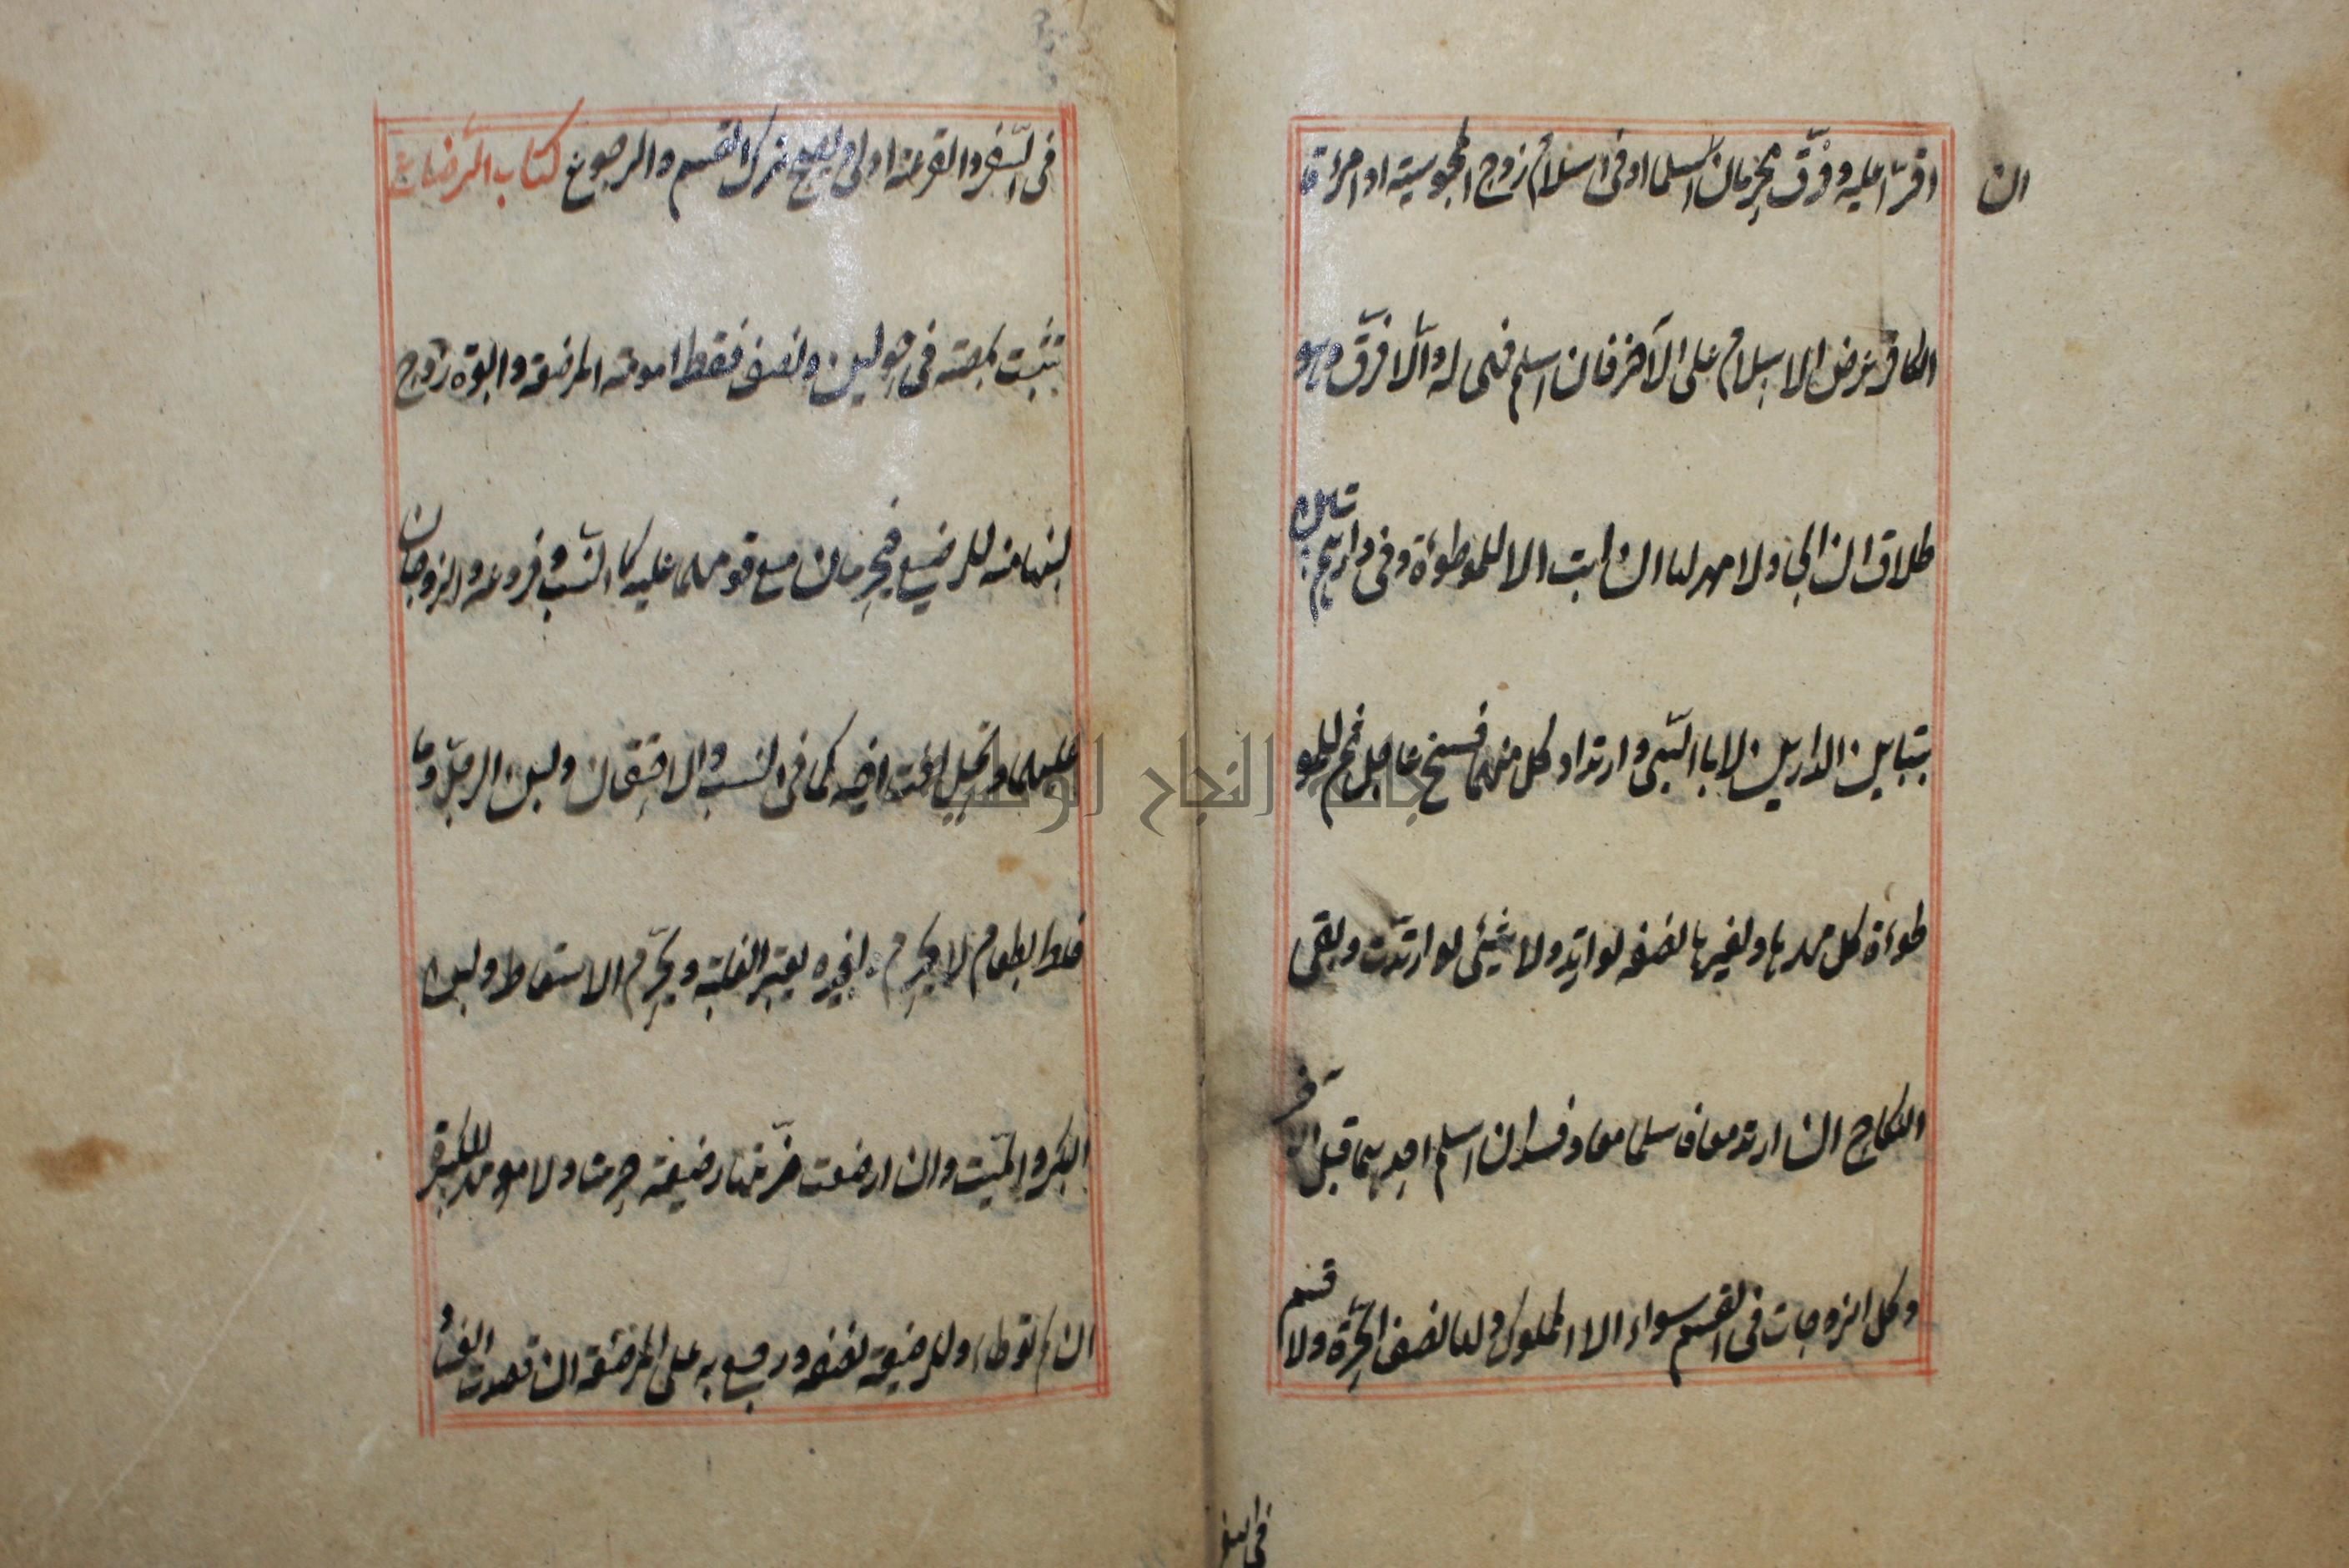 ان
اقرّا عليه وفرّق محرمان اسلما او في اسلام زوج المجوسية او امرأة
الكافر يعرض الاسلام على الآخر فان اسلم فهى له والّا فرّق وهو
طلاق ان ابى ولا مهر لها ان ابت الا للموطوأة وفى دارهم تبين
بتباين الدارين لا بالسّبى وارتداد كل منهما فسخ عاجل ثم للمو
طوءة كل مهرها ولغيرها نصفه لو ارتد ولا شيئ لو ارتدّت وبقى
النكاح ان ارتد معا فاسلما معا وفسد ان اسلم احدهما قبل الآخر
وكل الزوجات فى القسم سواء الا المملوك ولها نصف الحرّة ولا قسم
فى السفر
فى السّفر والقرعة اولى ويصح ترك القسم والرجوع كتاب الرّضاع
تثبت بمصّة فى حولين ونصف فقط امومة المرضعة وابوّة زوج
لبنها منه للرضيع فيحرمان مع قومهما عليه كالنّسب وفروعه والزوجان
عليهما وتحل اخت اخيه كما فى النسب والاحتقان ولبن الرجل وما
خلط بطعام لا يحرم وبغيره يعتبر الغلبة ويحرّم الاستعاط ولبن
البكر والميّت وان ارضعت ضرّتها رضيعة حرمت ولا مهر للكبيرة
ان لم توطا وللرضيعة نصفه ورجع به على المرضعة ان قصدت الفسا
جامعة النجاح الوطنية